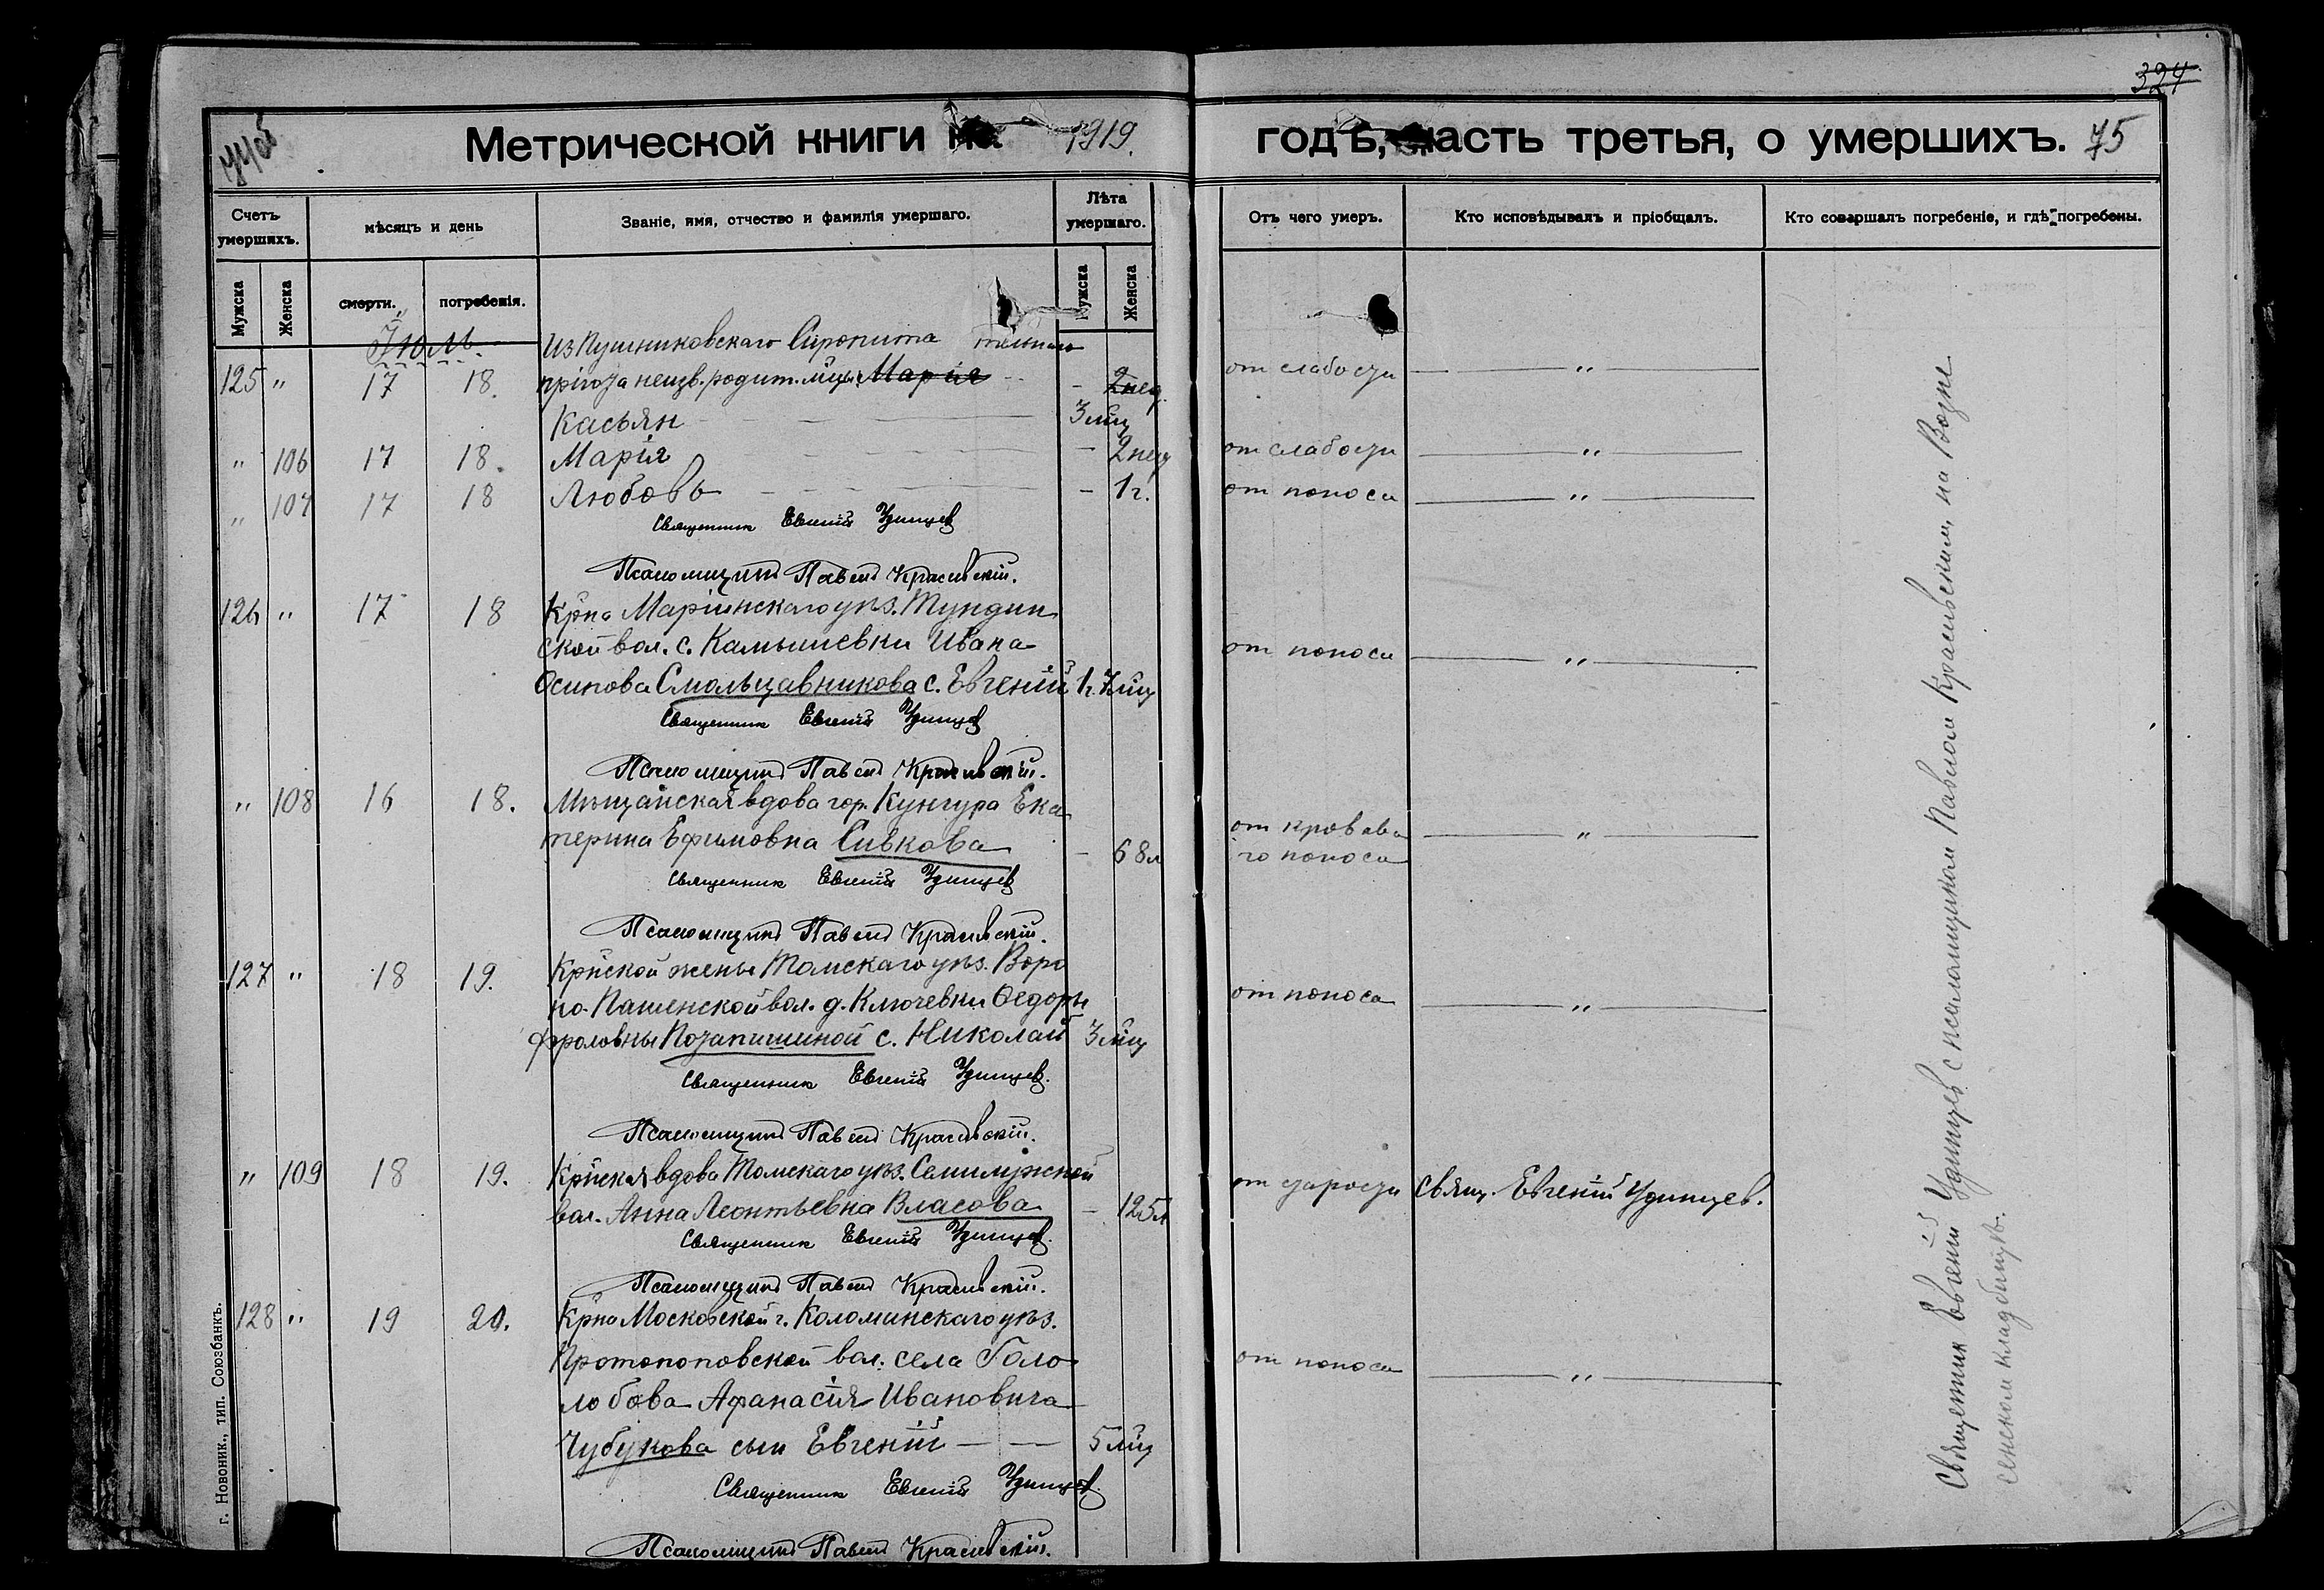 324
Метрической книги на 1919. годъ, часть третья, о умершихъ. 75
Счетъ умершихъ.
мѣсяцъ и день
Званіе, имя, отчество и фамилія умершаго.
Лѣта умершаго.
Отъ чего умеръ.
Кто исповѣдывалъ и пріобщалъ.
Кто совершалъ погребеніе, и гдѣ погребены.
Мужска
Женска
смерти.
погребенія.
Мужска
Женска
Іюль.
Из Пушниковскаго Сиропита тельнаго
125 " 17 18. пріюта неизв. родит. м̃цы Марія - 2 нед. от слабости — " —
Касьян 3 м̃ц
" 106 17 18. Марія - 2 нед от слабости — " —
" 107 17 18 Любовь - 1 г. от поноса — " —
Священник Евгеній Удинцев
Псаломщикъ Павелъ Красивскій.
126 " 17 18 Кр̃на Маріинскаго уѣз. Тундин
ской вол. с. Камышевки Ивана
от поноса — " —
Осипова Смольцавникова с. Евгеній 1 г. 7 м̃ц
Священник Евгеній Удинцев
Псаломщикъ Павелъ Красивскій.
" 108 16 18. Мѣщанская вдова гор. Кунгура Ека
терина Ефимовна Сивкова - 68 л от кровава — " —
го поноса
Священник Евгеній Удинцев
Псаломщикъ Павелъ Красивскій.
127 " 18 19. Кр̃нской жены Томскаго уѣз. Воро
но-Пашенской вол. д. Ключевки Ѳедоры от поноса — " —
Фроловны Позапишиной с. Николай 3 м̃ц
Священник Евгеній Удинцев.
Псаломщикъ Павелъ Красивскій.
" 109 18 19. Кр̃нская вдова Томскаго уѣз. Семилужской
вол. Анна Леонтьевна Власова - 125 л от старости Свящ. Евгеній Удинцев.
Священник Евгеній Удинцев.
Псаломщикъ Павелъ Красивскій.
128 " 19 20. Кр̃на Московской г. Коломинскаго уѣз.
Протопоповской вол. села Голо
от поноса — " —
лобова Афанасія Ивановича
Чубукова сын Евгеній — — 5 м̃ц
Священник Евгеній Удинцев.
Псаломщикъ Павелъ Красивскій.
Священник Евгеній Удинцев с псаломщиком Павлом Красивским, на Возне
сенском кладбищѣ.
г. Новоник., тип. Союзбанкъ.